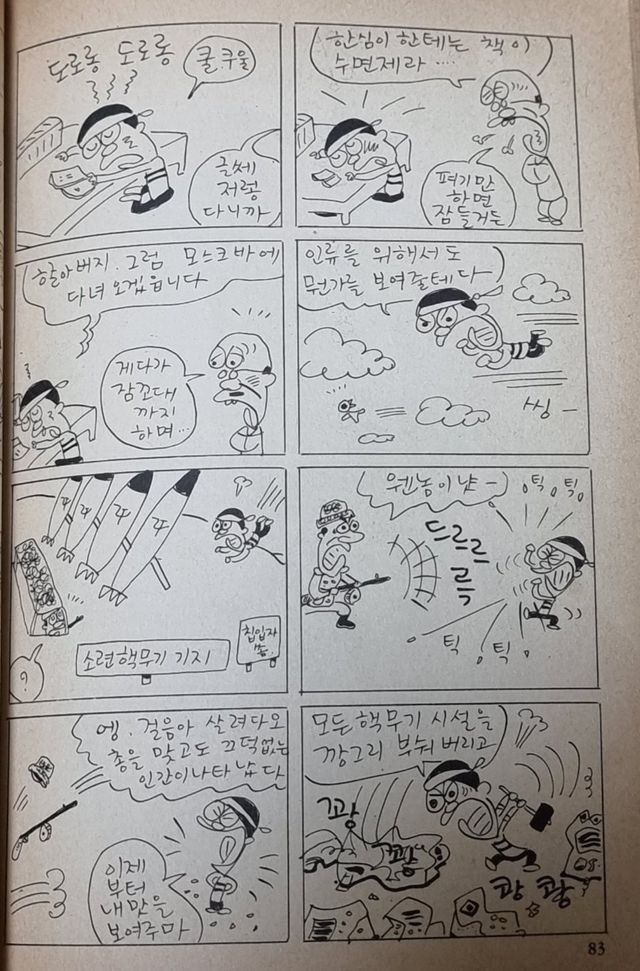 한심이 한테는 책이
수면제라 ....
펴기만
하면
잠들거든
도로롱 도로롱
쿨.쿠울
글쎄
저렇
다니까
할아버지. 그럼 모스크바에
다녀 오겠읍니다
게다가
잠꼬대
까지
하며...
인류를 위해서도
뭔가를 보여줄테다
씽-
소련핵무기 기지
침입자
?
웬놈이냣-
드르르
륵
틱. 틱.
틱. 틱.
엥. 걸음아 살려다오
총을 맞고도 끄덕없는
인간이나타났다
이제
부터
내맛을
보여주마
모든 핵무기 시설을
깡그리 부숴 버리고
쾅
쾅
쾅 쾅
83